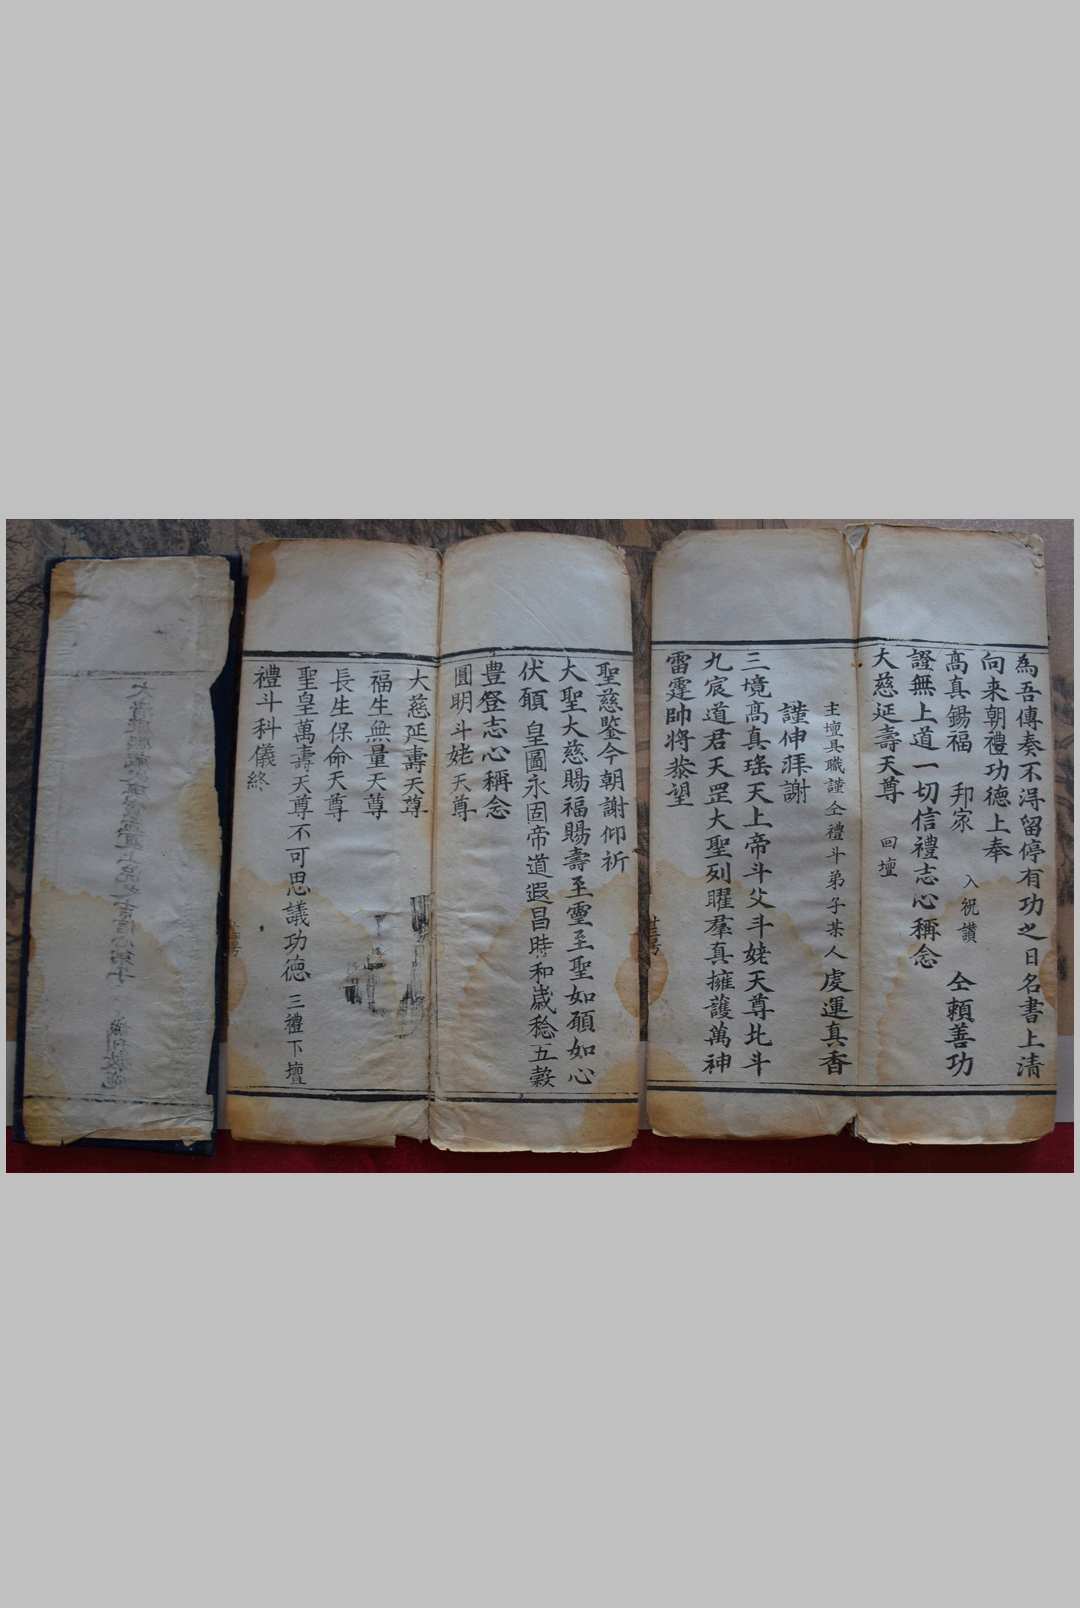 為吾傳奏不淂留停有功之日名書上清
向来朝禮功德上奉
髙真錫福 邦家 入祝讃 仝頼善功
證無上道一切信禮志心稱念
大慈延壽天尊 回壇
主壇具職謹仝禮斗弟子某人處運真香
謹伸拜謝
三境髙真瑤天上帝斗父斗姥天尊北斗
九宸道君天罡大聖列曜羣真擁護萬神
雷霆帥将恭望
聖慈鑒今朝謝仰祈
大聖大慈賜福賜壽至靈至聖如願如心
伏願 皇圖永固帝道遐昌時和歲稔五穀
豊登志心稱念
圓明斗姥天尊
大慈延壽天尊
福生無量天尊
長生保命天尊
聖皇萬壽天尊不可思議功德 三禮下壇
禮斗科儀終